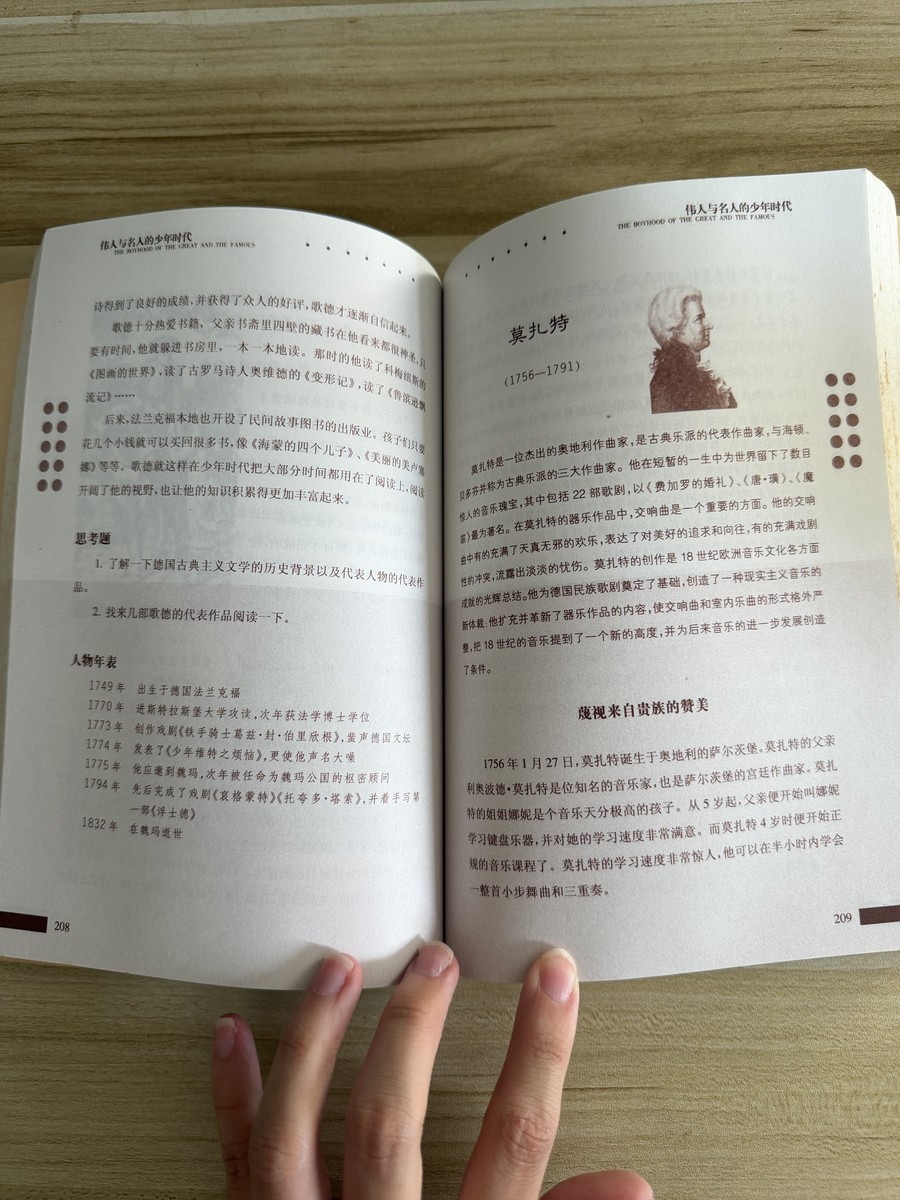 伟人与名人的少年时代
THE BOYHOOD OF THE GREAT AND THE FAMOUS
诗得到了良好的成绩,并获得了众人的好评,歌德才逐渐自信起来。
歌德十分热爱书籍，父亲书斋里四壁的藏书在他看来都很神圣,只
要有时间,他就躲进书房里，一本一本地读。那时的他读了科梅纽斯的
《图画的世界》,读了古罗马诗人奥维德的《变形记》,读了《鲁滨逊飘
流记》……
后来,法兰克福本地也开设了民间故事图书的出版业。孩子们只要
花几个小钱就可以买回很多书,像《海蒙的四个儿子》、《美丽的美卢塞
娜》等等。歌德就这样在少年时代把大部分时间都用在了阅读上,阅读
开阔了他的视野,也让他的知识积累得更加丰富起来。
思考题
1. 了解一下德国古典主义文学的历史背景以及代表人物的代表作
品。
2. 找来几部歌德的代表作品阅读一下。
人物年表
1749 年 出生于德国法兰克福
1770 年 进斯特拉斯堡大学攻读,次年获法学博士学位
1773 年 创作戏剧《铁手骑士葛兹·封·伯里欣根》,蜚声德国文坛
1774 年 发表了《少年维特之烦恼》,更使他声名大噪
1775 年 他应邀到魏玛,次年被任命为魏玛公国的枢密顾问
1794 年 先后完成了戏剧《哀格蒙特》《托夸多·塔索》,并着手写第
一部《浮士德》
1832 年 在魏玛逝世
208
伟人与名人的少年时代
THE BOYHOOD OF THE GREAT AND THE FAMOUS
莫扎特
(1756—1791)
莫扎特是一位杰出的奥地利作曲家,是古典乐派的代表作曲家,与海顿、
贝多芬并称为古典乐派的三大作曲家。他在短暂的一生中为世界留下了数目
惊人的音乐瑰宝,其中包括 22 部歌剧,以《费加罗的婚礼》、《唐·璜》、《魔
笛》最为著名。在莫扎特的器乐作品中,交响曲是一个重要的方面。他的交响
曲中有的充满了天真无邪的欢乐,表达了对美好的追求和向往,有的充满戏剧
性的冲突,流露出淡淡的忧伤。莫扎特的创作是 18 世纪欧洲音乐文化各方面
成就的光辉总结。他为德国民族歌剧奠定了基础,创造了一种现实主义音乐的
新体裁;他扩充并革新了器乐作品的内容,使交响曲和室内乐曲的形式格外严
整,把 18 世纪的音乐提到了一个新的高度,并为后来音乐的进一步发展创造
了条件。
蔑视来自贵族的赞美
1756 年 1 月 27 日,莫扎特诞生于奥地利的萨尔茨堡。莫扎特的父亲
利奥波德·莫扎特是位知名的音乐家,也是萨尔茨堡的宫廷作曲家。莫扎
特的姐姐娜妮是个音乐天分极高的孩子。从 5 岁起,父亲便开始叫娜妮
学习键盘乐器,并对她的学习速度非常满意。而莫扎特 4 岁时便开始正
规的音乐课程了。莫扎特的学习速度非常惊人,他可以在半小时内学会
一整首小步舞曲和三重奏。
209